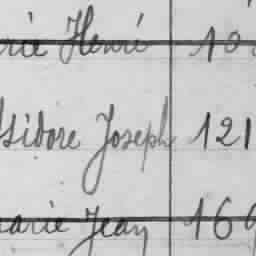 rie Henri 10
Isidore Joseph 121
marie Jean 169